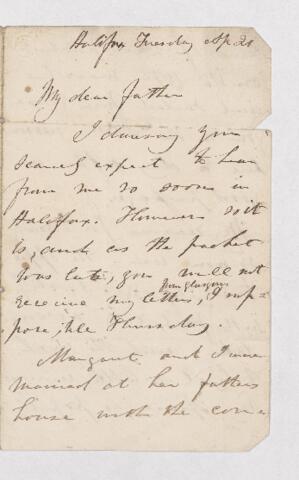 Halifax Tuesday Ap 21
My dear father
I daresay you
scarcely expect to hear
from me so soon in
Halifax. However so it
is, and as the packet
was late, you will not
from Glasgow
receive my letters, I sup=
pose, till Thursday.
Margaret and I were
married at her fathers
house with the con=